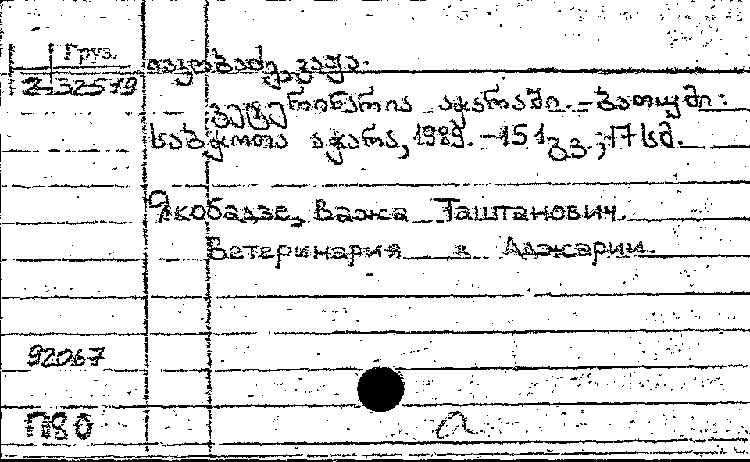 Груз.
2-32579
იაკობაძე, ვაჟა.
ვეტერინარია აჭარაში. - ბათუმი:
საბჭოთა აჭარა, 1989. - 151 გვ.; 17 სმ.
Якобадзе, Важа Таштанович.
Ветеринария в Аджарии.
92067
П80
а